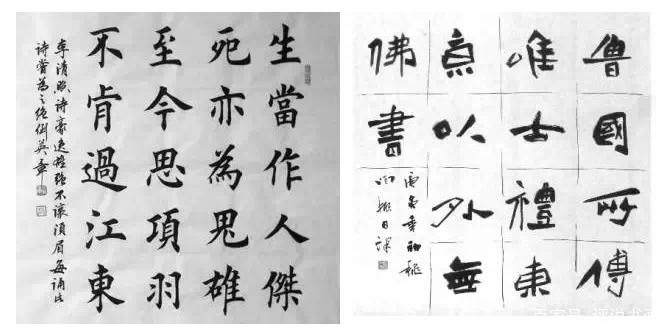 生當作人傑
死亦為鬼雄
至今思項羽
不肯過江東
李清照诗豪逸性强不讓須眉每誦此
诗嘗為之绝倒英章
魯國所傳
唯士禮東
京以外無
佛書